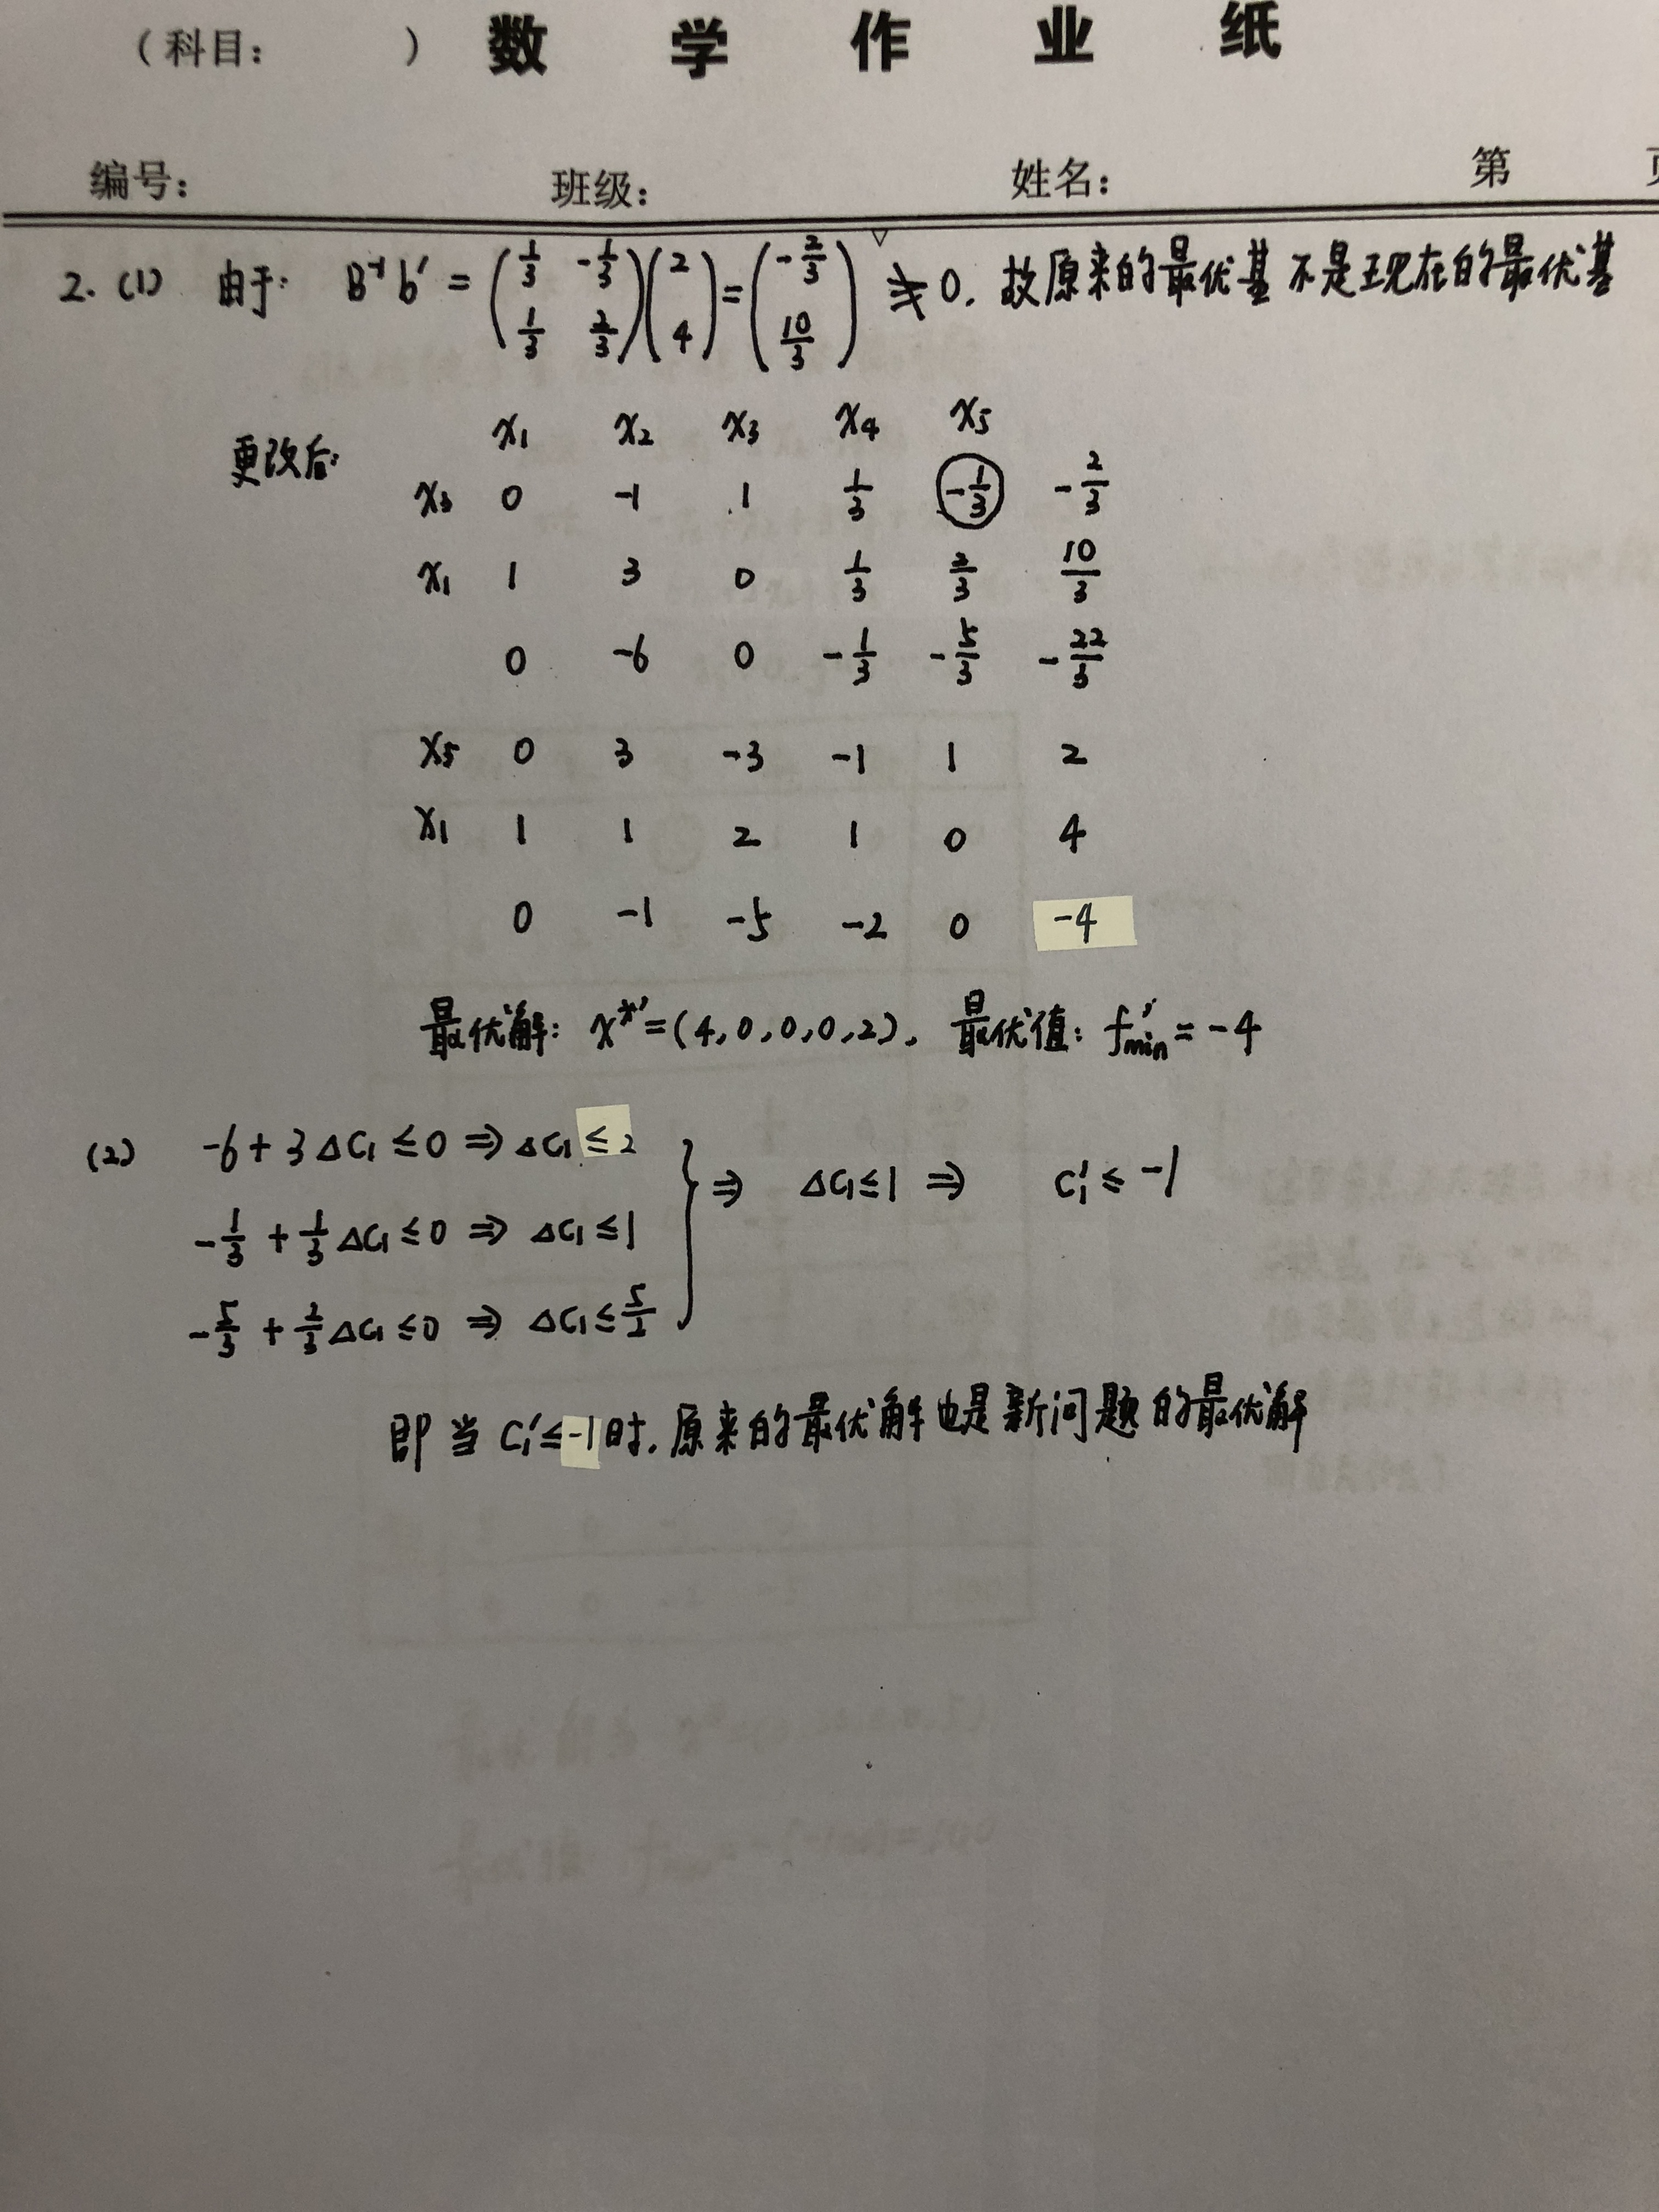 （科目：　　　） 数 学 作 业 纸
编号：　　班级：　　姓名：　　第
2. (1) 由于: B⁻¹b′ = (1/3 -1/3; 1/3 2/3)(2; 4) = (-2/3; 10/3) ≱ 0. 故原来的最优基不是现在的最优基
更改后: x₁ x₂ x₃ x₄ x₅
x₃ 0 -1 1 1/3 -1/3 -2/3
x₁ 1 3 0 1/3 2/3 10/3
0 -6 0 -1/3 -5/3 -22/3
x₅ 0 3 -3 -1 1 2
x₁ 1 1 2 1 0 4
0 -1 -5 -2 0 -4
最优解: x*′=(4,0,0,0,2), 最优值: f′min = -4
(2) -6+3ΔC₁≤0 ⇒ ΔC₁≤2
-1/3+1/3ΔC₁≤0 ⇒ ΔC₁≤1
-5/3+2/3ΔC₁≤0 ⇒ ΔC₁≤5/2
} ⇒ ΔC₁≤1 ⇒ C₁′≤-1
即当 C₁′≤-1时, 原来的最优解也是新问题的最优解